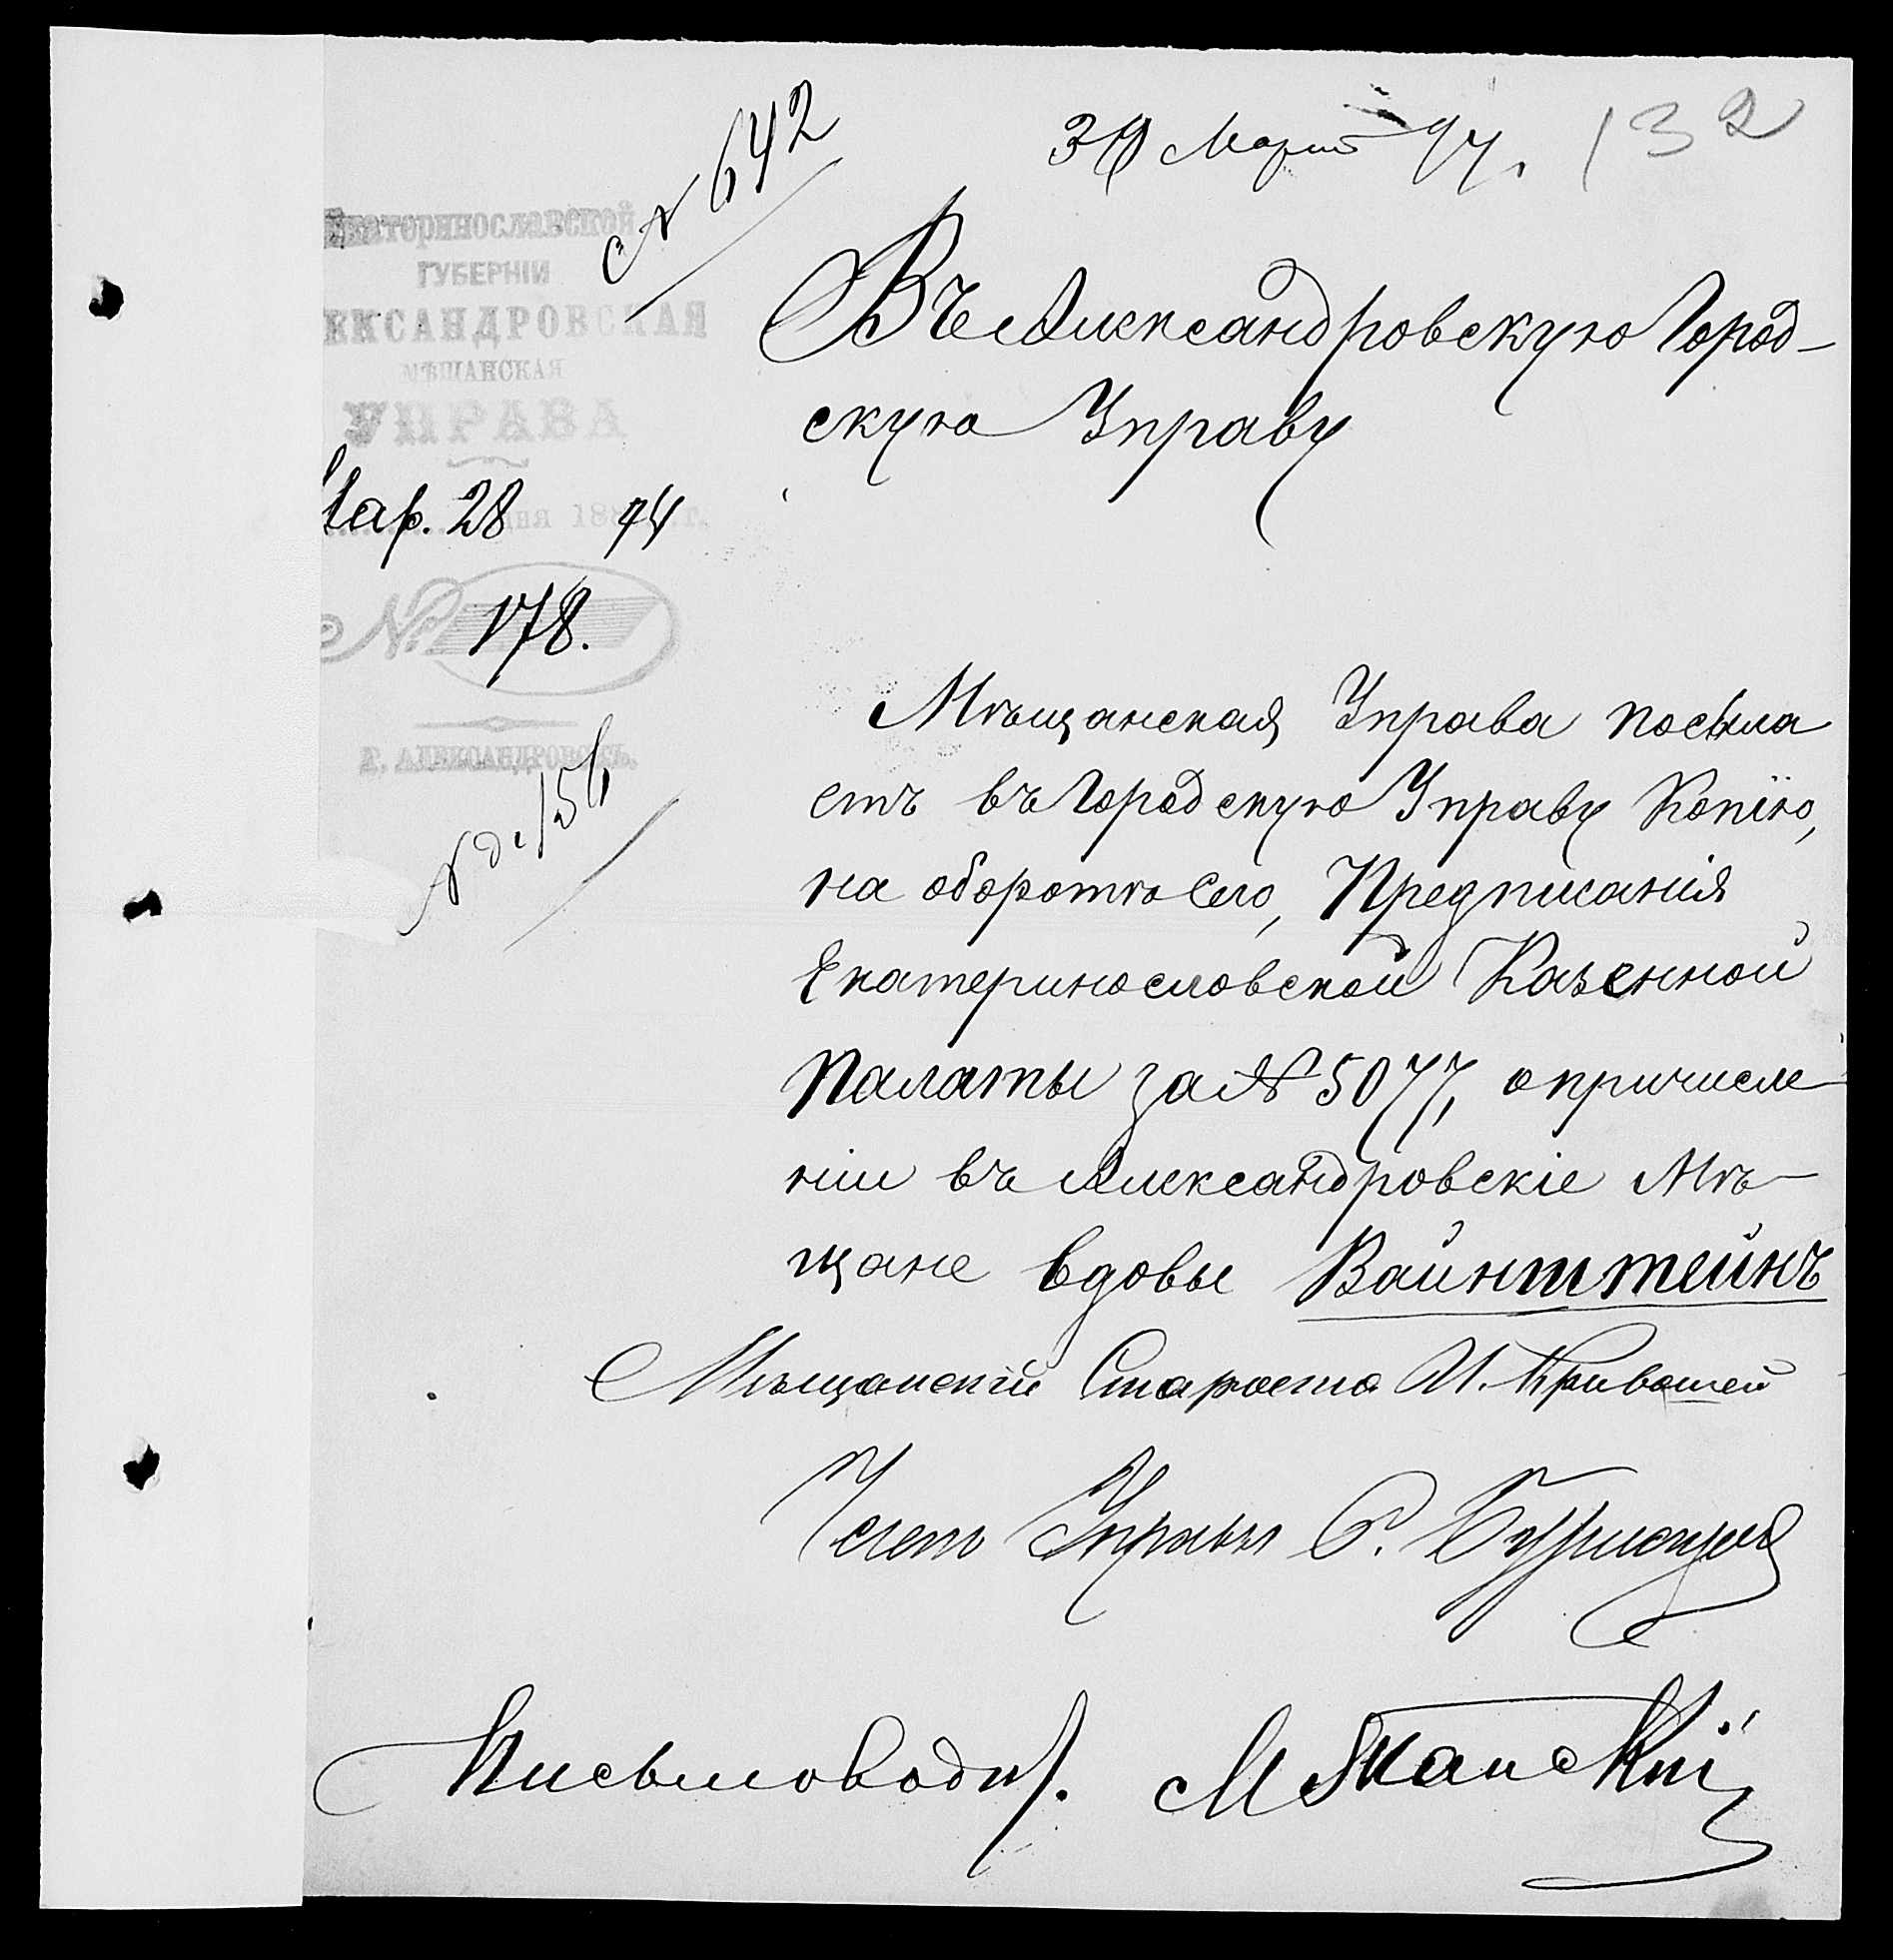 № 642
30 Март 94. 132
Екатеринославской
ГУБЕРНІИ
ЕКСАНДРОВСКАЯ
МѢЩАНСКАЯ
УПРАВА
Мар. 28 дня 188 94 г.
№ 178.
Г. АЛЕКСАНДРОВСКЪ.
Въ Александровскую Город-
скую Управу
Мѣщанская Управа посыла
етъ въ Городскую Управу Копію,
на оборотѣ сего, Предписанія
Екатеринославской Казенной
Палаты за № 5077, о причисле
ніи въ Александровскіе Мѣ-
щане вдовы Вайнштейнъ
Мѣщанскій Староста И. Кривошей
Член Управы С.
Письмоводит.